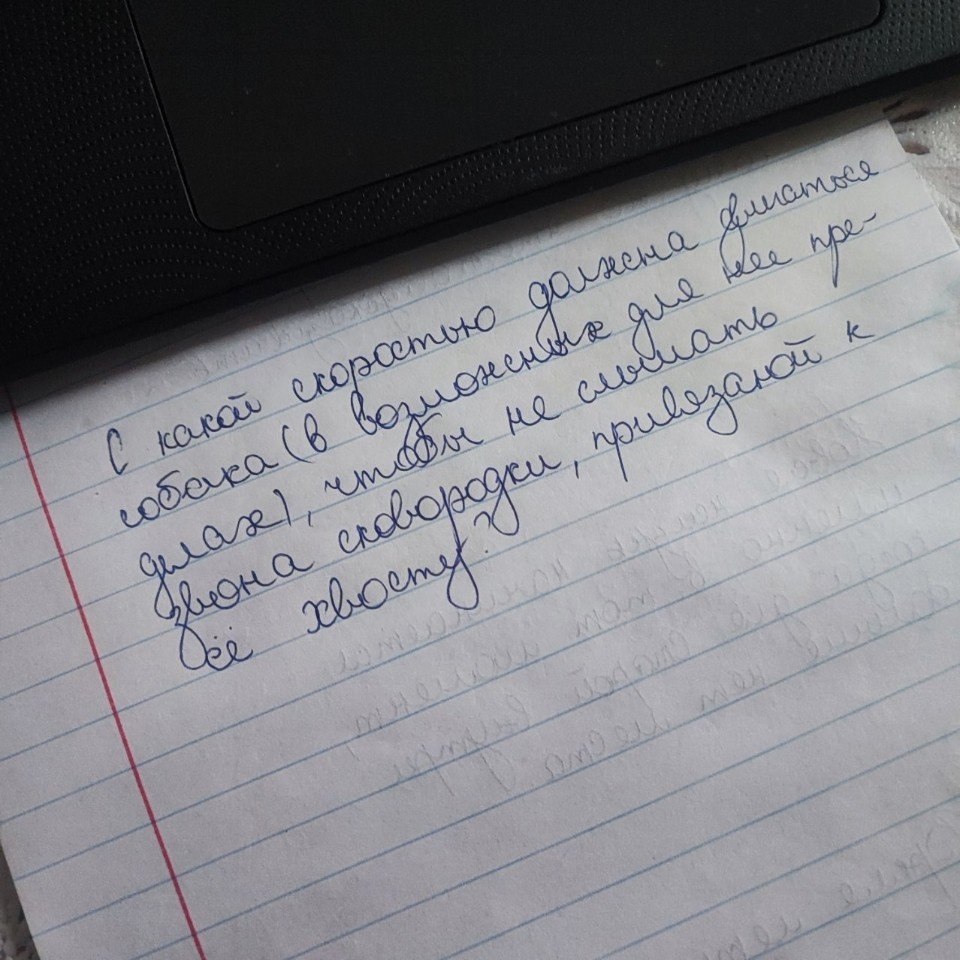 С какой скоростью должна двигаться
собака (в возможных для нее пре-
делах), чтобы не слышать
звона сковородки, привязаной к
её хвосту?